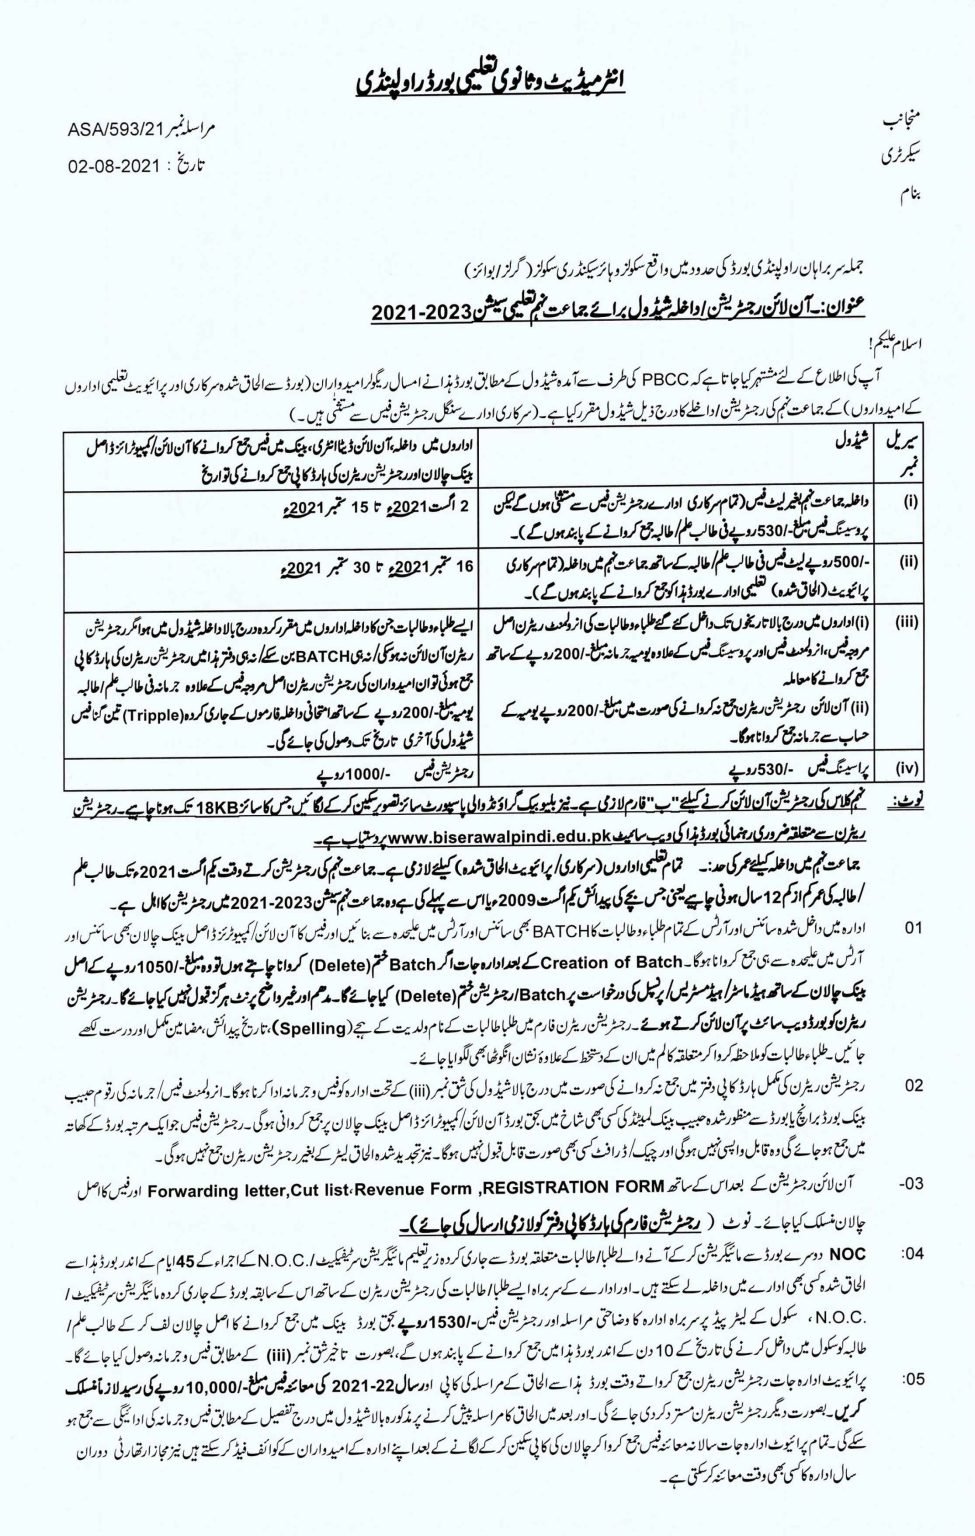 انٹرمیڈیٹ وثانوی تعلیمی بورڈ راولپنڈی
منجانب
مراسلہ نمبر ASA/593/21
سیکرٹری
تاریخ : 02-08-2021
بنام
جملہ سربراہان راولپنڈی بورڈ کی حدود میں واقع سکولز و ہائر سیکنڈری سکولز (گرلز/بوائز)
عنوان:۔ آن لائن رجسٹریشن/داخلہ شیڈول برائے جماعت نہم تعلیمی سیشن 2021-2023
اسلام علیکم!
آپ کی اطلاع کے لئے مشتہر کیا جاتا ہے کہ PBCC کی طرف سے آمدہ شیڈول کے مطابق بورڈ ہذا نے امسال ریگولر امیدواران (بورڈ سے الحاق شدہ سرکاری اور پرائیویٹ تعلیمی اداروں
کے امیدواروں) کے جماعت نہم کی رجسٹریشن/داخلے کا درج ذیل شیڈول مقرر کیا ہے۔ (سرکاری ادارے سنگل رجسٹریشن فیس سے مستثنٰی ہیں۔)
سیریل نمبر
شیڈول
اداروں میں داخلہ، آن لائن ڈیٹا انٹری، بینک میں فیس جمع کروانے کا آن لائن/کمپیوٹرائزڈ اصل
بینک چالان اور رجسٹریشن ریٹرن کی ہارڈ کاپی جمع کروانے کی تواریخ
(i)
داخلہ جماعت نہم بغیر لیٹ فیس (تمام سرکاری ادارے رجسٹریشن فیس سے مستثنٰی ہوں گے لیکن
پروسیسنگ فیس مبلغ -/530 روپے فی طالب علم/طالبہ جمع کروانے کے پابند ہوں گے)۔
2 اگست 2021ء تا 15 ستمبر 2021ء
(ii)
-/500 روپے لیٹ فیس فی طالب علم/طالبہ کے ساتھ جماعت نہم میں داخلہ (تمام سرکاری
پرائیویٹ (الحاق شدہ) تعلیمی ادارے بورڈ ہذا کو جمع کروانے کے پابند ہوں گے)۔
16 ستمبر 2021ء تا 30 ستمبر 2021ء
(iii)
(i) اداروں میں درج بالا تاریخوں تک داخل کئے گئے طلباء و طالبات کی انرولمنٹ ریٹرن اصل
مروجہ فیس، انرولمنٹ فیس اور پروسیسنگ فیس کے علاوہ یومیہ جرمانہ مبلغ -/200 روپے کے ساتھ
جمع کروانے کا معاملہ
(ii) آن لائن رجسٹریشن ریٹرن جمع نہ کروانے کی صورت میں مبلغ -/200 روپے یومیہ کے
حساب سے جرمانہ جمع کروانا ہوگا۔
ایسے طلباء و طالبات جن کا داخلہ اداروں میں مقرر کردہ درج بالا داخلہ شیڈول میں ہوا مگر رجسٹریشن
ریٹرن آن لائن نہ ہوسکی/نہ ہی BATCH بن سکے/نہ ہی دفتر ہذا میں رجسٹریشن ریٹرن کی ہارڈ کاپی
جمع ہوئی تو ان امیدواران کی رجسٹریشن ریٹرن اصل مروجہ فیس کے علاوہ جرمانہ فی طالب علم/طالبہ
یومیہ مبلغ -/200 روپے کے ساتھ امتحانی داخلہ فارموں کے جاری کردہ (Tripple) تین گنا فیس
شیڈول کی آخری تاریخ تک وصول کی جائے گی۔
(iv)
پراسیسنگ فیس -/530 روپے
رجسٹریشن فیس -/1000 روپے
نوٹ: نہم کلاس کی رجسٹریشن آن لائن کرنے کیلئے "ب" فارم لازمی ہے۔ نیز بلیو بیک گراؤنڈ والی پاسپورٹ سائز تصویر سکین کر کے لگائیں جس کا سائز 18KB تک ہونا چاہیے۔ رجسٹریشن
ریٹرن سے متعلقہ ضروری رہنمائی بورڈ ہذا کی ویب سائیٹ www.biserawalpindi.edu.pk پر دستیاب ہے۔
جماعت نہم میں داخلہ کیلئے عمر کی حد:۔ تمام تعلیمی اداروں (سرکاری/پرائیویٹ الحاق شدہ) کیلئے لازمی ہے۔ جماعت نہم کی رجسٹریشن کرتے وقت یکم اگست 2021ء تک طالب علم
/طالبہ کی عمر کم از کم 12 سال ہونی چاہیے یعنی: جس بچے کی پیدائش یکم اگست 2009ء یا اس سے پہلے کی ہے وہ جماعت نہم سیشن 2023-2021 میں رجسٹریشن کا اہل ہے۔
01 ادارہ میں داخل شدہ سائنس اور آرٹس کے تمام طلباء و طالبات کا BATCH بھی سائنس اور آرٹس میں علیحدہ سے بنائیں اور فیس کا آن لائن/کمپیوٹرائزڈ اصل بینک چالان بھی سائنس اور
آرٹس میں علیحدہ سے ہی جمع کروانا ہوگا۔ Creation of Batch کے بعد ادارہ جات اگر Batch ختم (Delete) کروانا چاہتے ہوں تو وہ مبلغ -/1050 روپے کے اصل
بینک چالان کے ساتھ ہیڈ ماسٹر/ہیڈ مسٹریس/پرنسپل کی درخواست پر Batch/رجسٹریشن ختم (Delete) کیا جائے گا۔ مدھم اور غیر واضح پرنٹ ہرگز قبول نہیں کیا جائے گا۔ رجسٹریشن
ریٹرن کو بورڈ ویب سائٹ پر آن لائن کرتے ہوئے۔ رجسٹریشن ریٹرن فارم میں طلبا طالبات کے نام ولدیت کے ہجے (Spelling)، تاریخ پیدائش، مضامین مکمل اور درست لکھے
جائیں۔ طلباء طالبات کو ملاحظہ کروا کر متعلقہ کالم میں ان کے دستخط کے علاوہ نشان انگوٹھا بھی لگوایا جائے۔
02 رجسٹریشن ریٹرن کی مکمل ہارڈ کاپی دفتر میں جمع نہ کروانے کی صورت میں درج بالا شیڈول کی شق نمبر (iii) کے تحت ادارہ کو فیس و جرمانہ ادا کرنا ہوگا۔ انرولمنٹ فیس/جرمانہ کی رقوم حبیب
بینک بورڈ برانچ یا بورڈ سے منظور شدہ حبیب بینک لمیٹڈ کی کسی بھی شاخ میں بحق بورڈ آن لائن/کمپیوٹرائزڈ اصل بینک چالان پر جمع کروانی ہوگی۔ رجسٹریشن فیس جو ایک مرتبہ بورڈ کے کھاتہ
میں جمع ہو جائے گی وہ قابل واپسی نہیں ہوگی اور چیک/ڈرافٹ کسی بھی صورت قابل قبول نہیں ہوگا۔ نیز تجدید شدہ الحاق لیٹر کے بغیر رجسٹریشن ریٹرن جمع نہیں ہوگی۔
-03 آن لائن رجسٹریشن کے بعد اس کے ساتھ Forwarding letter,Cut list،Revenue Form ,REGISTRATION FORM اور فیس کا اصل
چالان منسلک کیا جائے۔ نوٹ (رجسٹریشن فارم کی ہارڈ کاپی دفتر کو لازمی ارسال کی جائے)۔
:04 NOC دوسرے بورڈ سے مائیگریشن کر کے آنے والے طلبا/طالبات متعلقہ بورڈ سے جاری کردہ زیر تعلیم مائیگریشن سرٹیفکیٹ/.N.O.C کے اجراء کے 45 ایام کے اندر بورڈ ہذا سے
الحاق شدہ کسی بھی ادارے میں داخلہ لے سکتے ہیں۔ اور ادارے کے سربراہ ایسے طلبا/طالبات کی رجسٹریشن ریٹرن کے ساتھ اس کے سابقہ بورڈ کے جاری کردہ مائیگریشن سرٹیفکیٹ/
.N.O.C، سکول کے لیٹر پیڈ پر سربراہ ادارہ کا وضاحتی مراسلہ اور رجسٹریشن فیس -/1530 روپے بحق بورڈ بینک میں جمع کروانے کا اصل چالان لف کر کے طالب علم/
طالبہ کو سکول میں داخل کرنے کی تاریخ کے 10 دن کے اندر بورڈ ہذا میں جمع کروانے کے پابند ہوں گے، بصورت تاخیر شق نمبر (iii) کے مطابق فیس و جرمانہ وصول کیا جائے گا۔
:05 پرائیویٹ ادارہ جات رجسٹریشن ریٹرن جمع کرواتے وقت بورڈ ہذا سے الحاق کے مراسلہ کی کاپی اور سال 22-2021 کی معائنہ فیس مبلغ -/10,000 روپے کی رسید لازماً منسلک
کریں۔ بصورت دیگر رجسٹریشن ریٹرن مسترد کر دی جائے گی۔ اور بعد میں الحاق کا مراسلہ پیش کرنے پر مذکورہ بالا شیڈول میں درج تفصیل کے مطابق فیس و جرمانہ کی ادائیگی سے جمع ہو
سکے گی۔ تمام پرائیوٹ ادارہ جات سالانہ معائنہ فیس جمع کروا کر چالان کی کاپی سکین کر کے لگانے کے بعد اپنے ادارہ کے امیدواران کے کوائف فیڈ کر سکتے ہیں نیز مجاز اتھارٹی دوران
سال ادارہ کا کسی بھی وقت معائنہ کر سکتی ہے۔